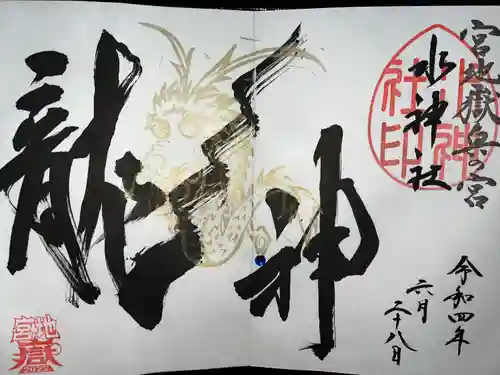 宮地嶽奥之宮
水神社
水神社印
龍神
令和四年
六月
二十八日
宮地
嶽
2022